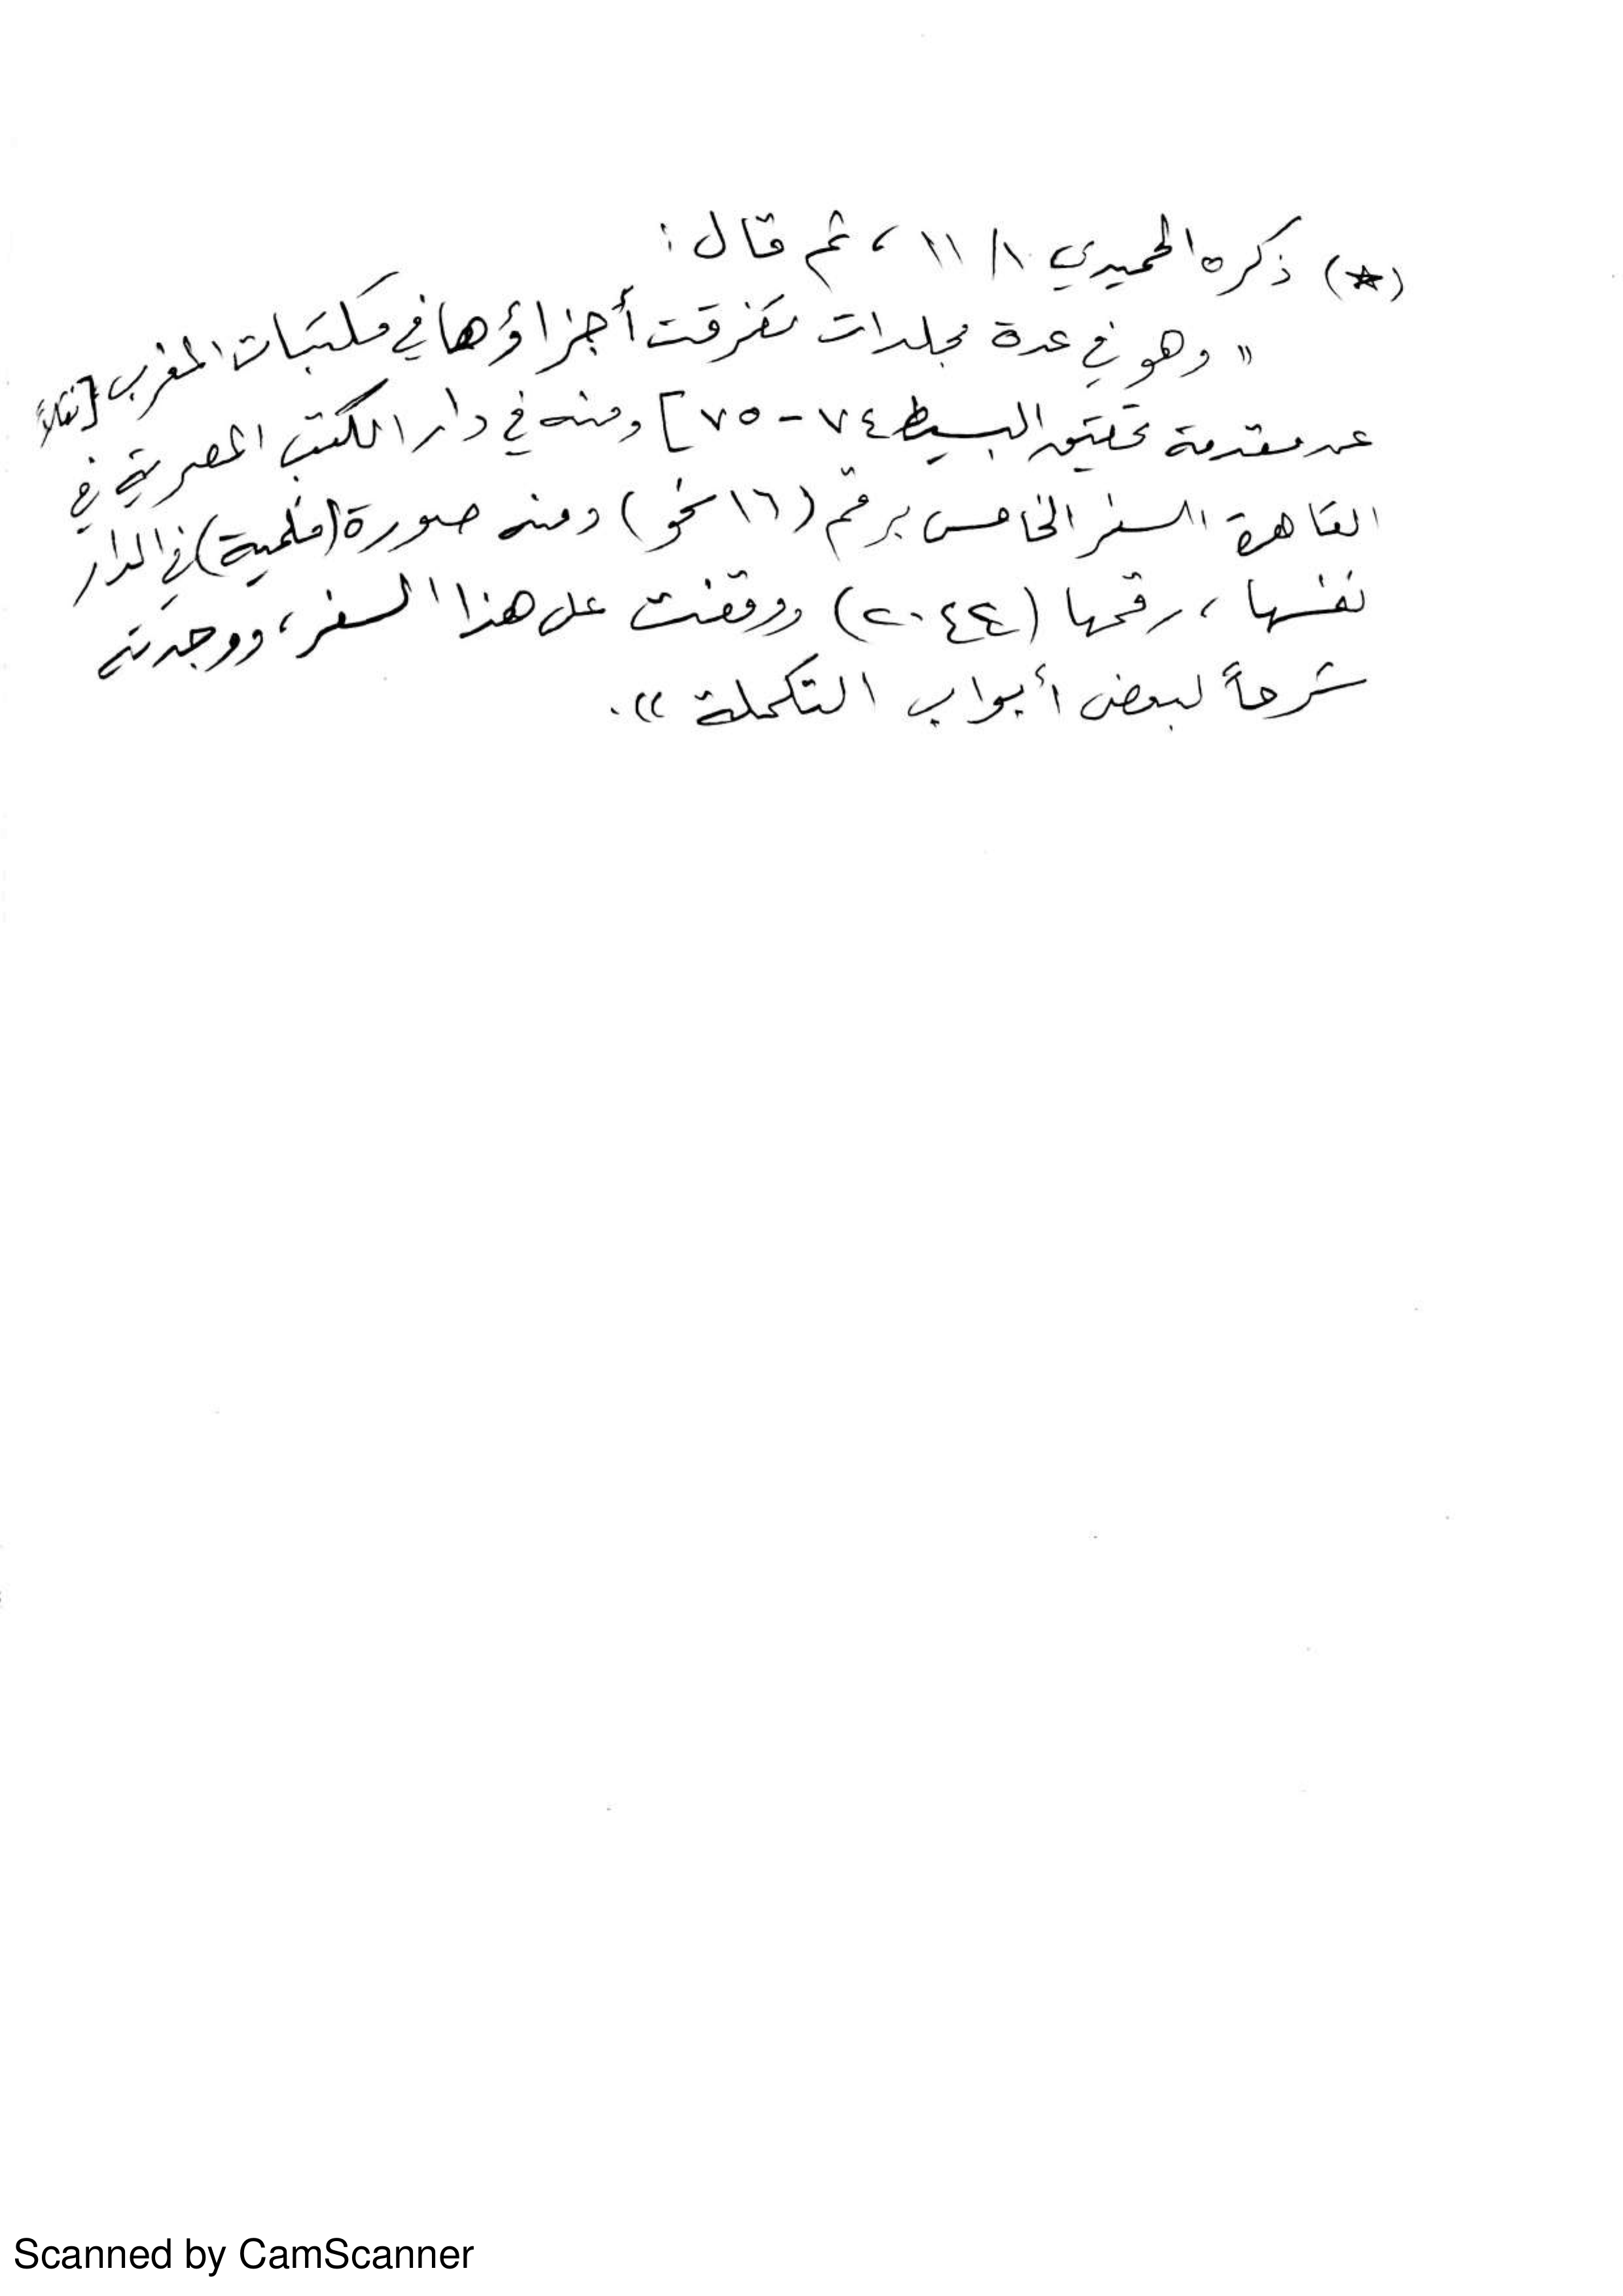 (☆) ذكره الحميدي ١/ ١١ ، ثم قال :
" وهو في عدة مجلدات تفرقت أجزاؤها في مكتبات المغرب [نقلاً
عن مقدمة تحقيق البسيط ٧٤ - ٧٥] ومنه في دار الكتب المصرية في
القاهرة السفر الخامس برقم (١٦ نحو) ومنه صورة (فلمية) في الدار
نفسها ، رقمها ( ) ووقفت على هذا السفر ، ووجدته
شرحاً لبعض أبواب التكملة ".
Scanned by CamScanner